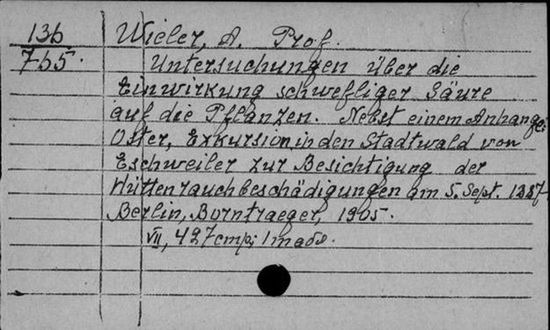 136 Wieler, A. Prof.
755. Untersuchungen über die
Einwirkung schwefliger Säure
auf die Pflanzen. Nebst einem Anhange:
Oster, Exkursion in den Stadtwald von
Eschweiler zur Besichtigung der
Hüttenrauchbeschädigungen am 5. Sept. 1887
Berlin, Borntraeger, 1905.
VII, 427 стр;